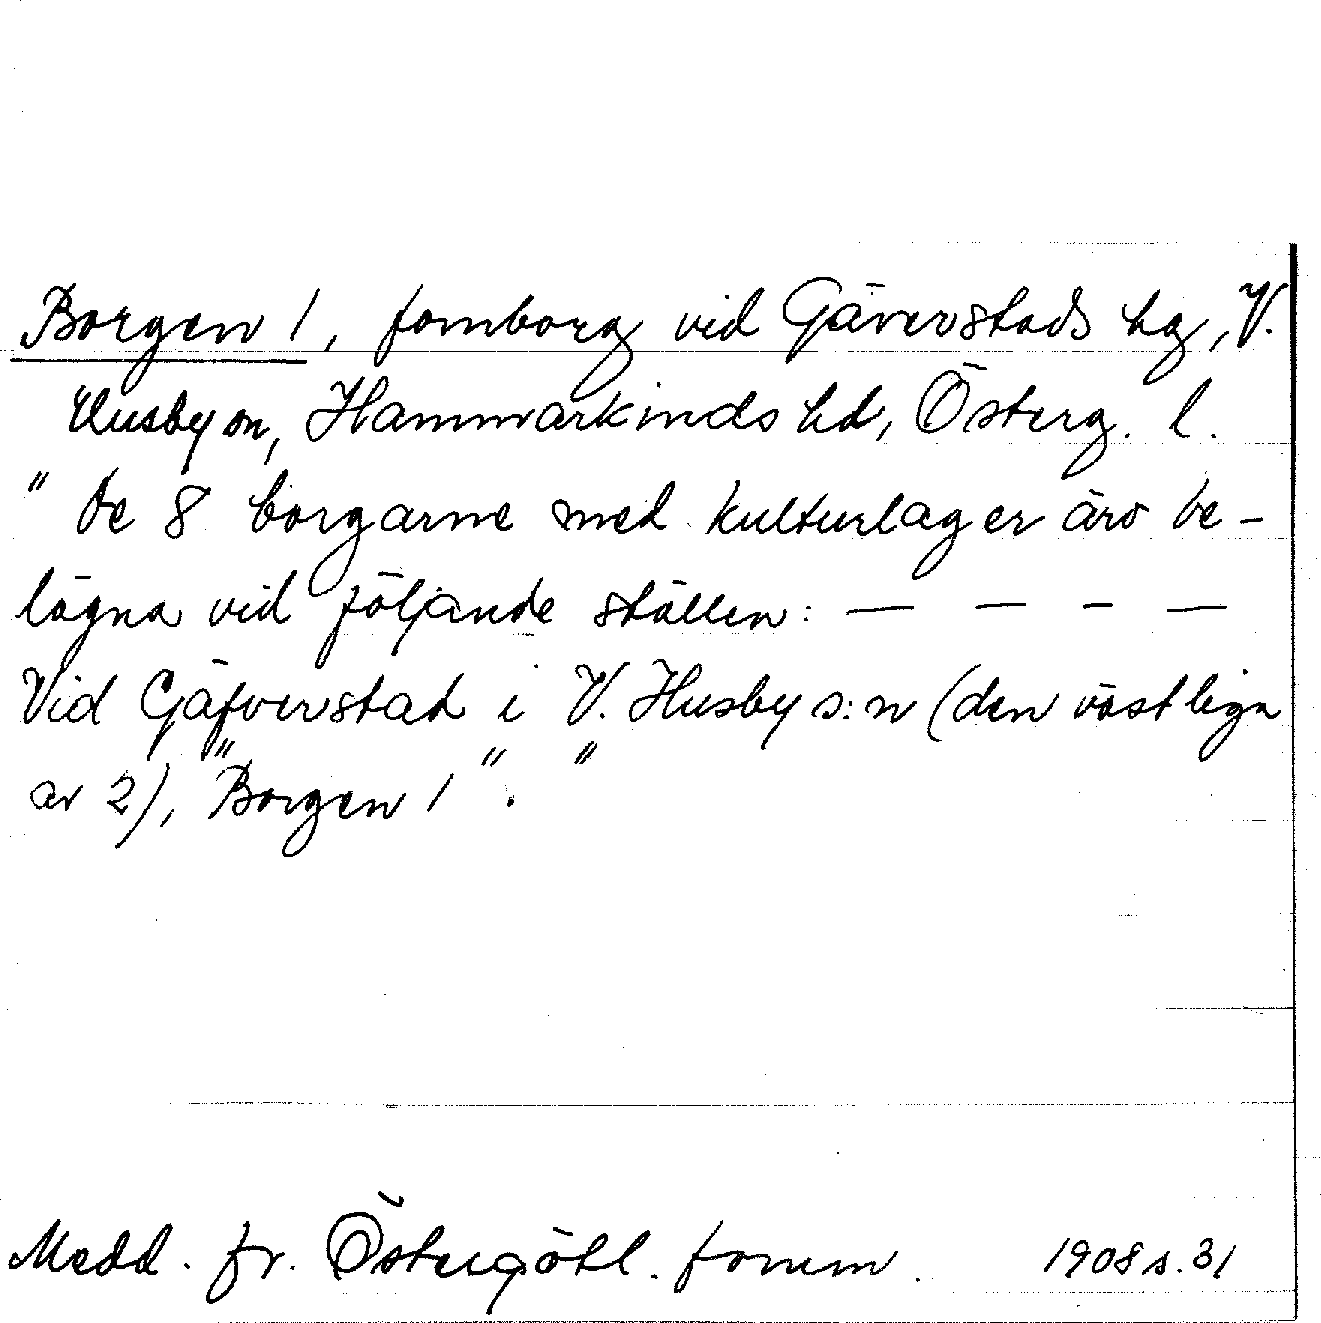 Borgen 1, fornborg vid Gäverstads hg, V.
Husby sn, Hammarkinds hd, Österg. l.
" De 8 borgarne med kulturlager äro be-
lägna vid följande ställen: — — – —
Vid Gäfverstad i V. Husby s:n (den västliga
av 2), "Borgen 1". "
Medd. fr. Östergötl. fornm. 1908 s. 31